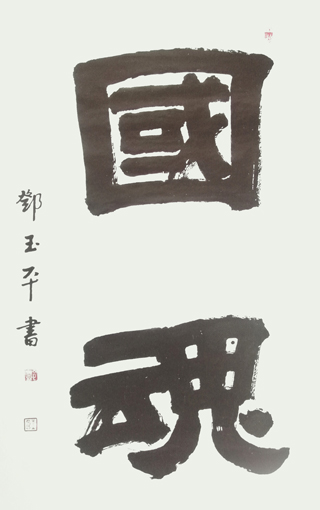 國魂
鄧玉平書